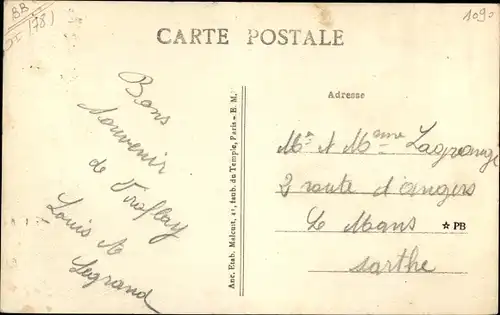 BB
(78)
1090
CARTE POSTALE
Bons
Souvenir
de Viroflay
Louis A
Legrand
Anc. Etab. Malcuit, 41, faub. du Temple, Paris - E. M.
Adresse
Mr & Mme Lagrange
2 route d'angers
Le Mans
☆ PB
sarthe